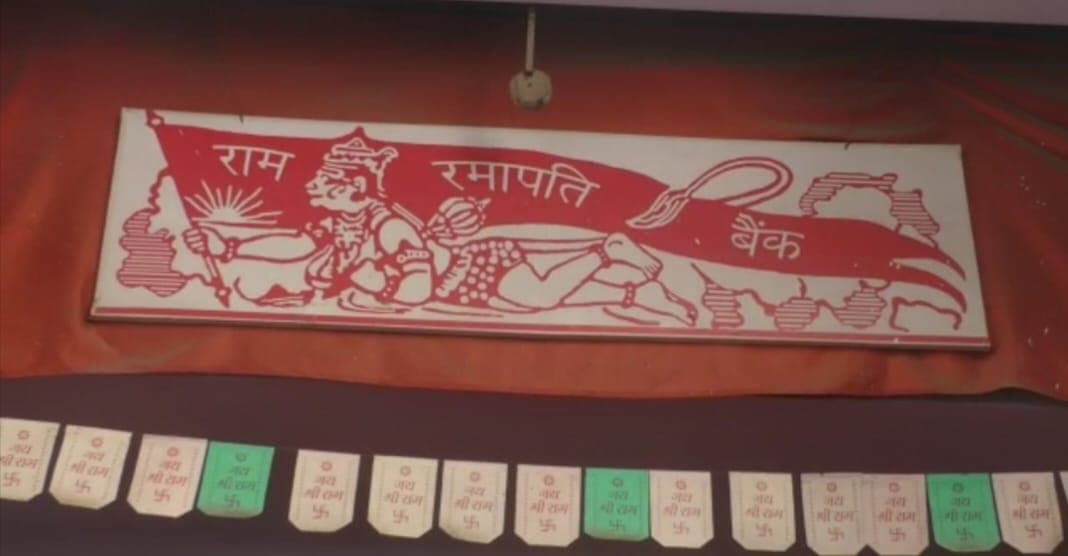 राम रमापति बैंक
जय
श्री राम
जय
श्री राम
जय
श्री राम
जय
श्री राम
जय
श्री राम
जय
श्री राम
जय
श्री राम
जय
श्री राम
जय
श्री राम
जय
श्री राम
जय
श्री राम
जय
श्री राम
जय
श्री राम
जय
श्री राम
जय
श्री राम